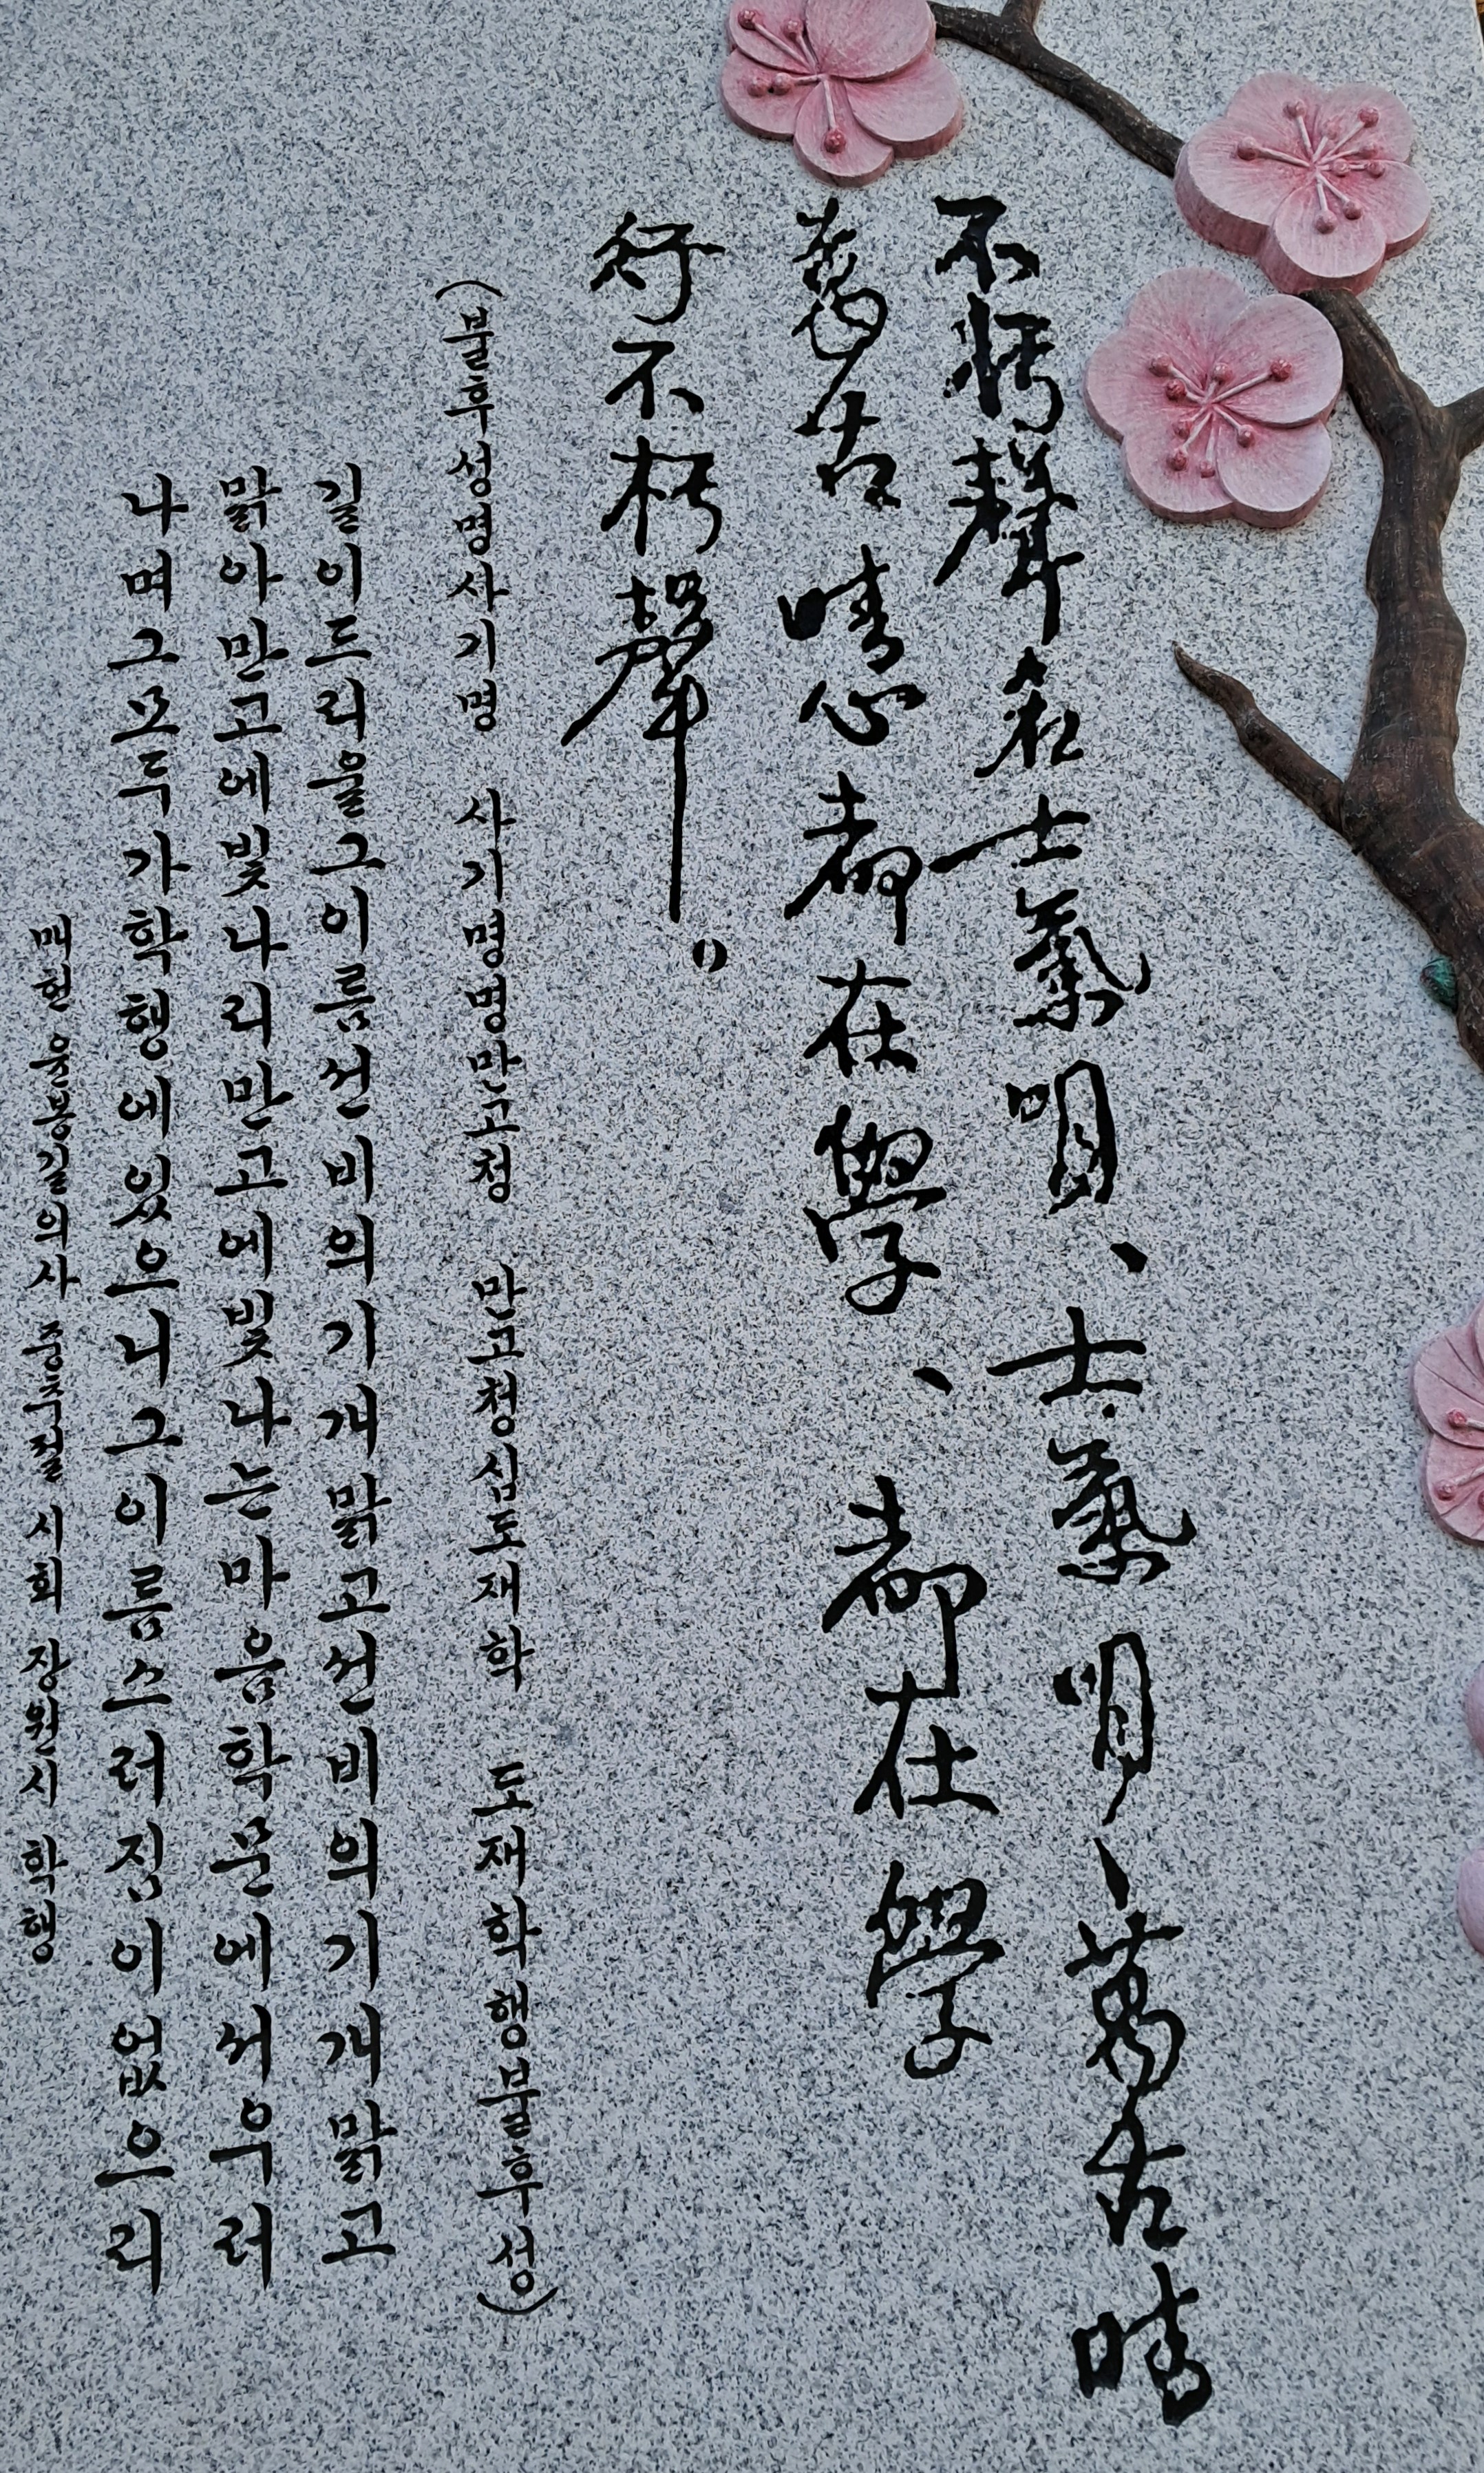 不朽聲名士氣明、士氣明、萬古晴
萬古晴心都在學、都在學
行不朽聲。
(불후성명사기명 사기명명만고청 만고청심도재학 도재학행불후성)
길이드리울그이름선비의기개맑고선비의기개맑고
맑아만고에빛나리만고에빛나는마음학문에서우러
나며그모두가학행에있으니그이름스러짐이없으리
매헌윤봉길의사 중추절 시회 장원시 학행